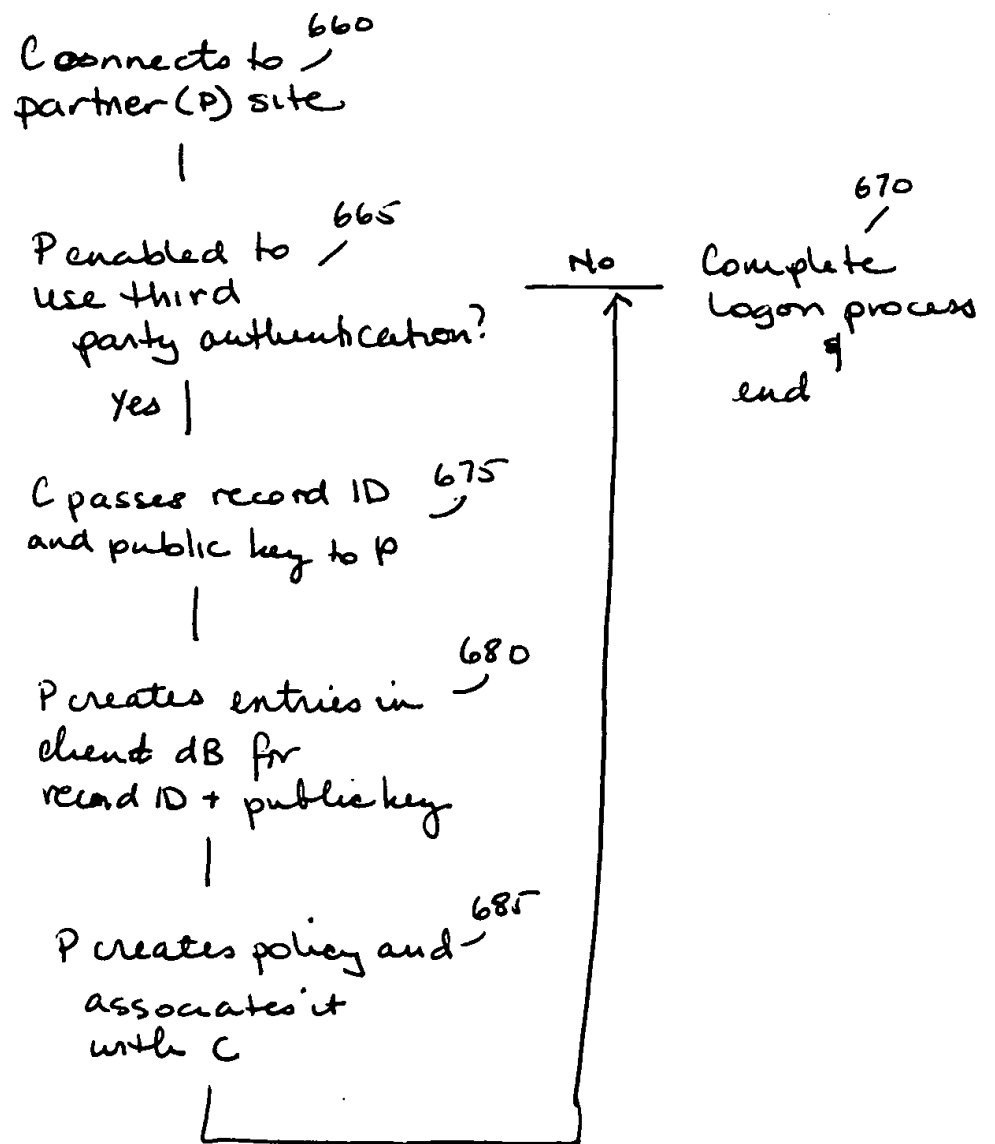 660
C connects to
partner (P) site
665
P enabled to
use third
party authentication?
Yes
No
670
Complete
logon process
&
end
675
C passes record ID
and public key to P
680
P creates entries in
client dB for
record ID + public key
685
P creates policy and
associates it
with C